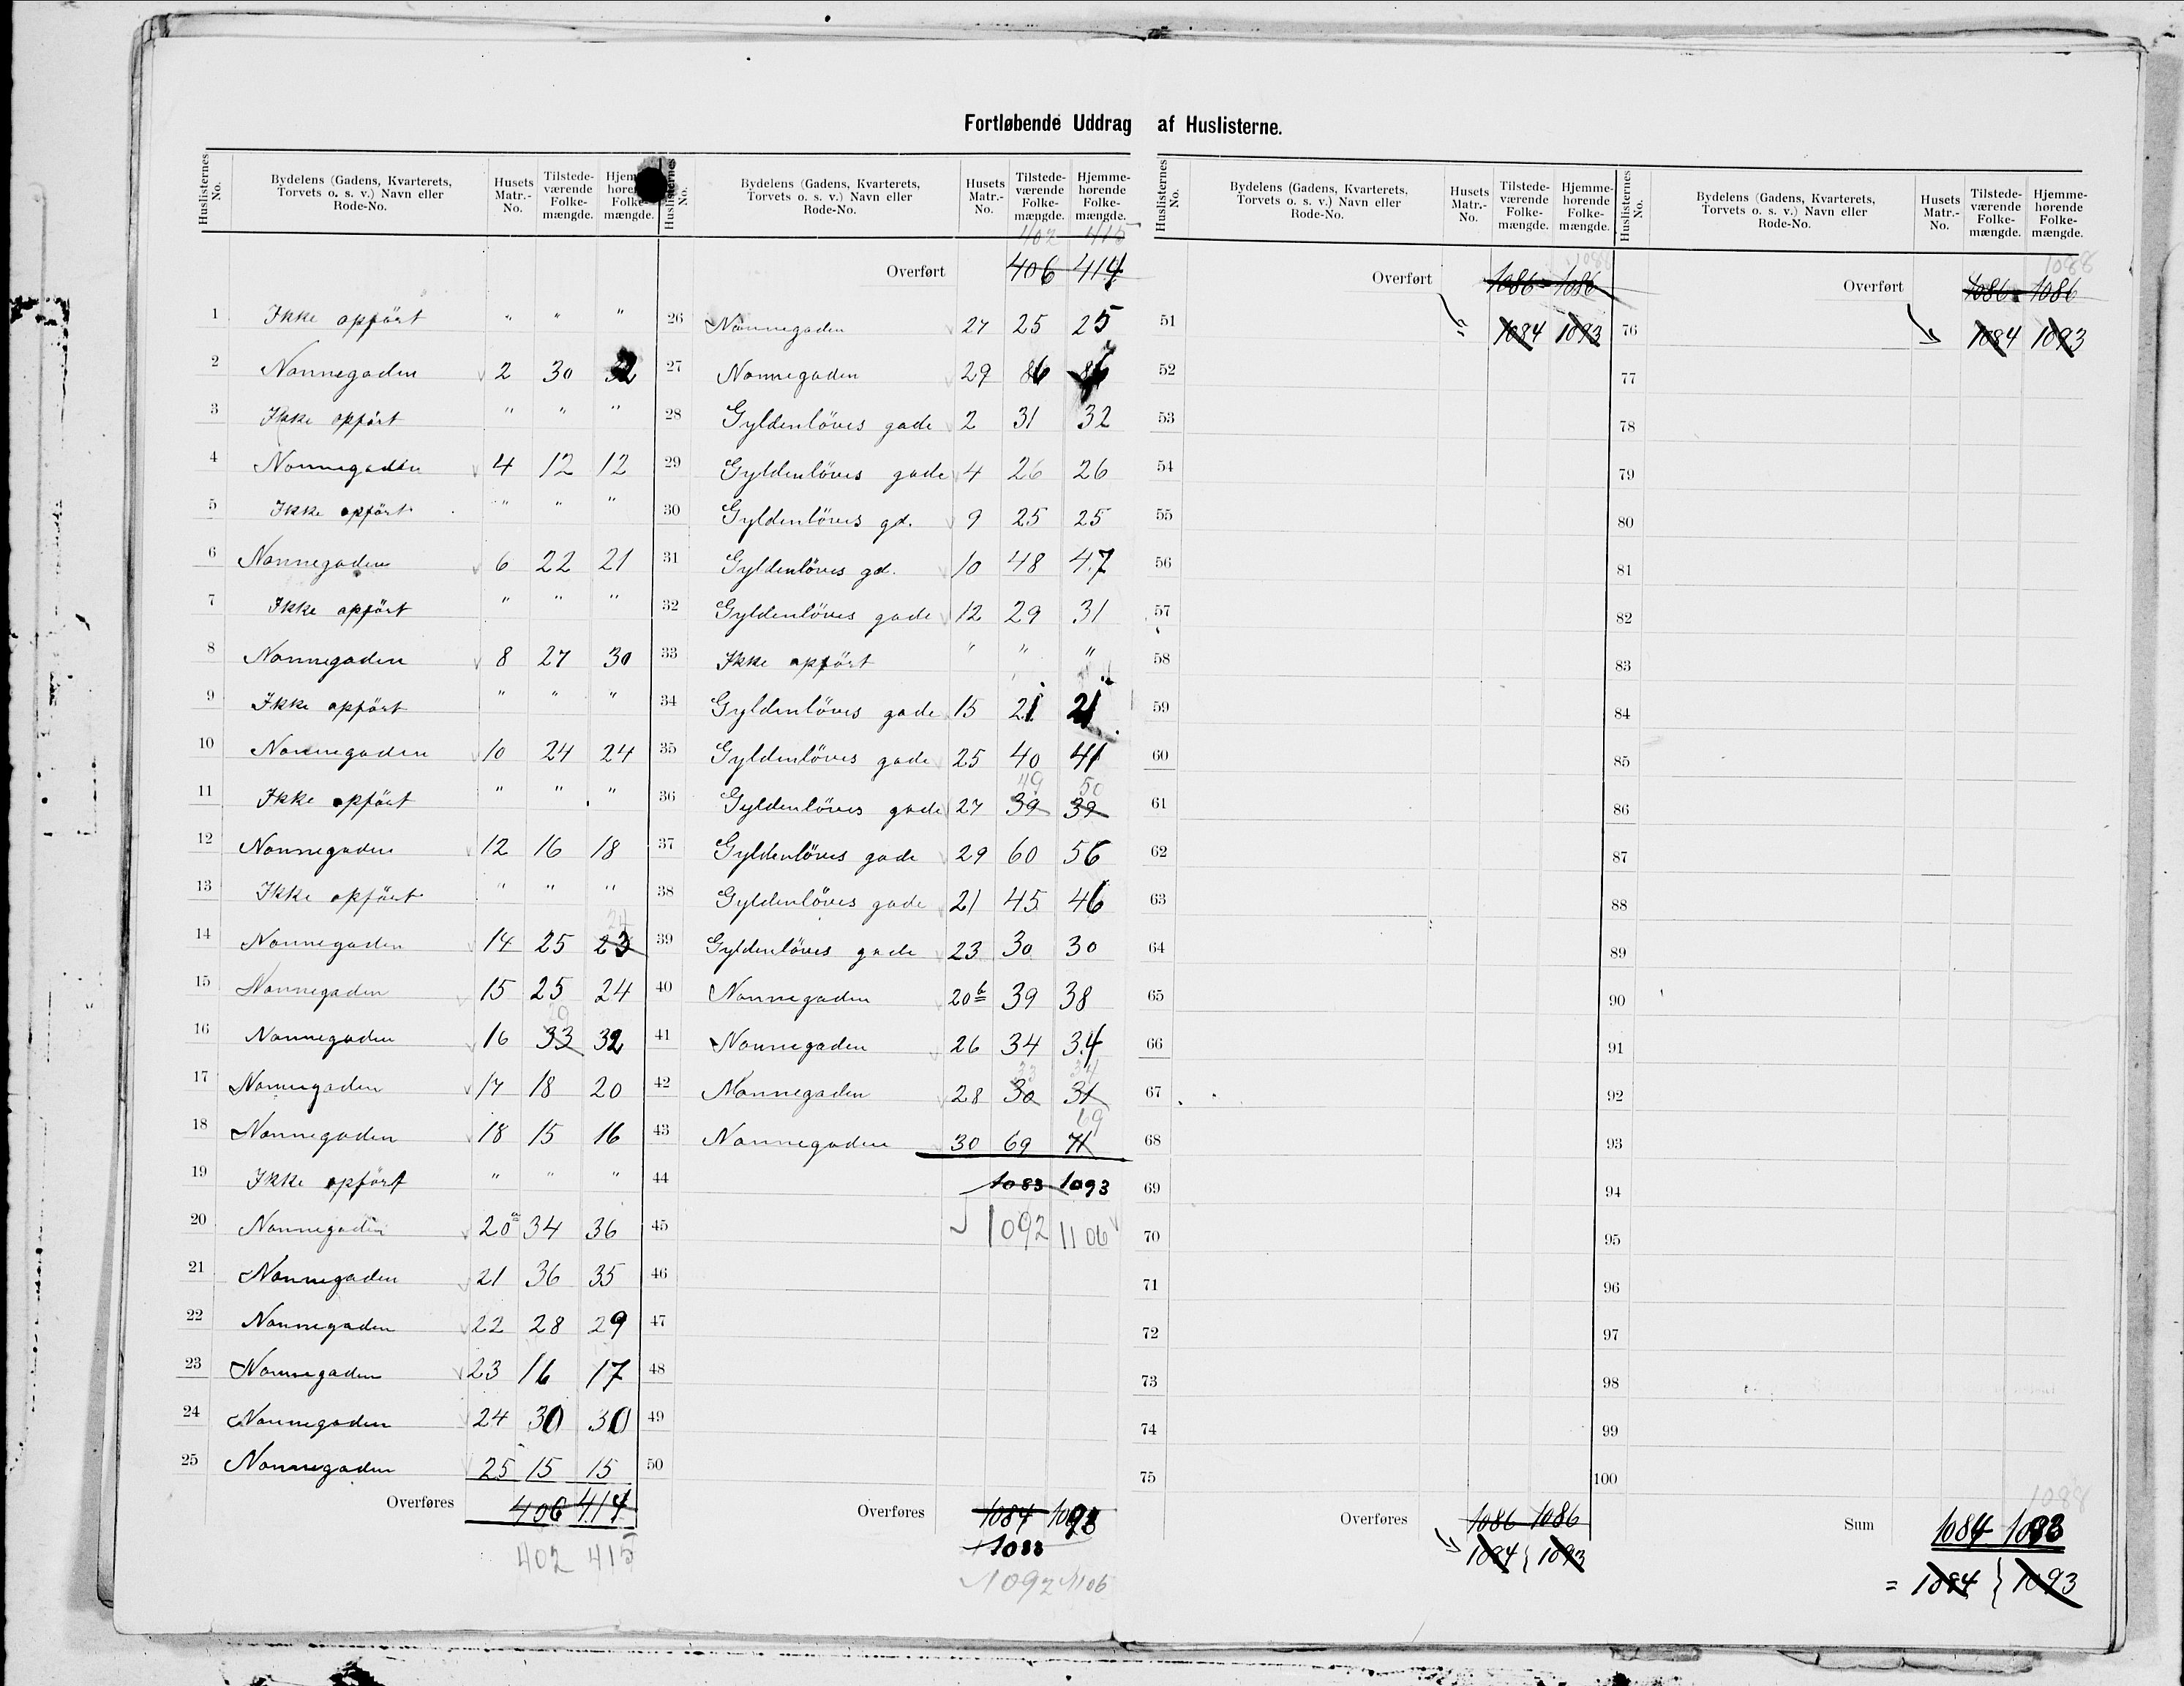 Fortløbende Uddrag af Huslisterne.
Huslisternes No. Bydelens (Gadens, Kvarterets, Torvets o. s. v.) Navn eller Rode-No. Husets Matr.-No. Tilstedeværende Folkemængde. Hjemmehørende Folkemængde.
1 Ikke opfört " " "
2 Nonnegaden 2 30 32
3 Ikke opfört " " "
4 Nonnegaden 4 12 12
5 Ikke opfört " " "
6 Nonnegaden 6 22 21
7 Ikke opfört " " "
8 Nonnegaden 8 27 30
9 Ikke opfört " " "
10 Nonnegaden 10 24 24
11 Ikke opfört " " "
12 Nonnegaden 12 16 18
13 Ikke opfört " " "
24
14 Nonnegaden 14 25 23
15 Nonnegaden 15 25 24
29
16 Nonnegaden 16 33 32
17 Nonnegaden 17 18 20
18 Nonnegaden 18 15 16
19 Ikke opfört " " "
20 Nonnegaden 20a 34 36
21 Nonnegaden 21 36 35
22 Nonnegaden 22 28 29
23 Nonnegaden 23 16 17
24 Nonnegaden 24 30 30
25 Nonnegaden 25 15 15
Overføres 406 414
402 415
Huslisternes No. Bydelens (Gadens, Kvarterets, Torvets o. s. v.) Navn eller Rode-No. Husets Matr.-No. Tilstedeværende Folkemængde. Hjemmehørende Folkemængde.
402 415
Overført 406 414
26 Nonnegaden 27 25 25
27 Nonnegaden 29 86 86
28 Gyldenlöves gade 2 31 32
29 Gyldenlöves gade 4 26 26
30 Gyldenlöves gd. 9 25 25
31 Gyldenlöves gd. 10 48 47
32 Gyldenlöves gade 12 29 31
33 Ikke opfört " " "
34 Gyldenlöves gade 15 21 21
35 Gyldenlöves gade 25 40 41
49 50
36 Gyldenlöves gade 27 39 39
37 Gyldenlöves gade 29 60 56
38 Gyldenlöves gade 21 45 46
39 Gyldenlöves gade 23 30 30
40 Nonnegaden 20b 39 38
41 Nonnegaden 26 34 34
33 34
42 Nonnegaden 28 30 31
69
43 Nonnegaden 30 69 71
44 1083 1093
45 1092 1106
46
47
48
49
50
Overføres 1084 1093
1083
1092 1106
Huslisternes No. Bydelens (Gadens, Kvarterets, Torvets o. s. v.) Navn eller Rode-No. Husets Matr.-No. Tilstedeværende Folkemængde. Hjemmehørende Folkemængde.
1088
Overført 1086 1086
51 1084 1093
52
53
54
55
56
57
58
59
60
61
62
63
64
65
66
67
68
69
70
71
72
73
74
75
Overføres 1086 1086
1084 1093
Huslisternes No. Bydelens (Gadens, Kvarterets, Torvets o. s. v.) Navn eller Rode-No. Husets Matr.-No. Tilstedeværende Folkemængde. Hjemmehørende Folkemængde.
1088
Overført 1086 1086
76 1084 1093
77
78
79
80
81
82
83
84
85
86
87
88
89
90
91
92
93
94
95
96
97
98
99
100
1088
Sum 1084 1093
= 1084 } 1093